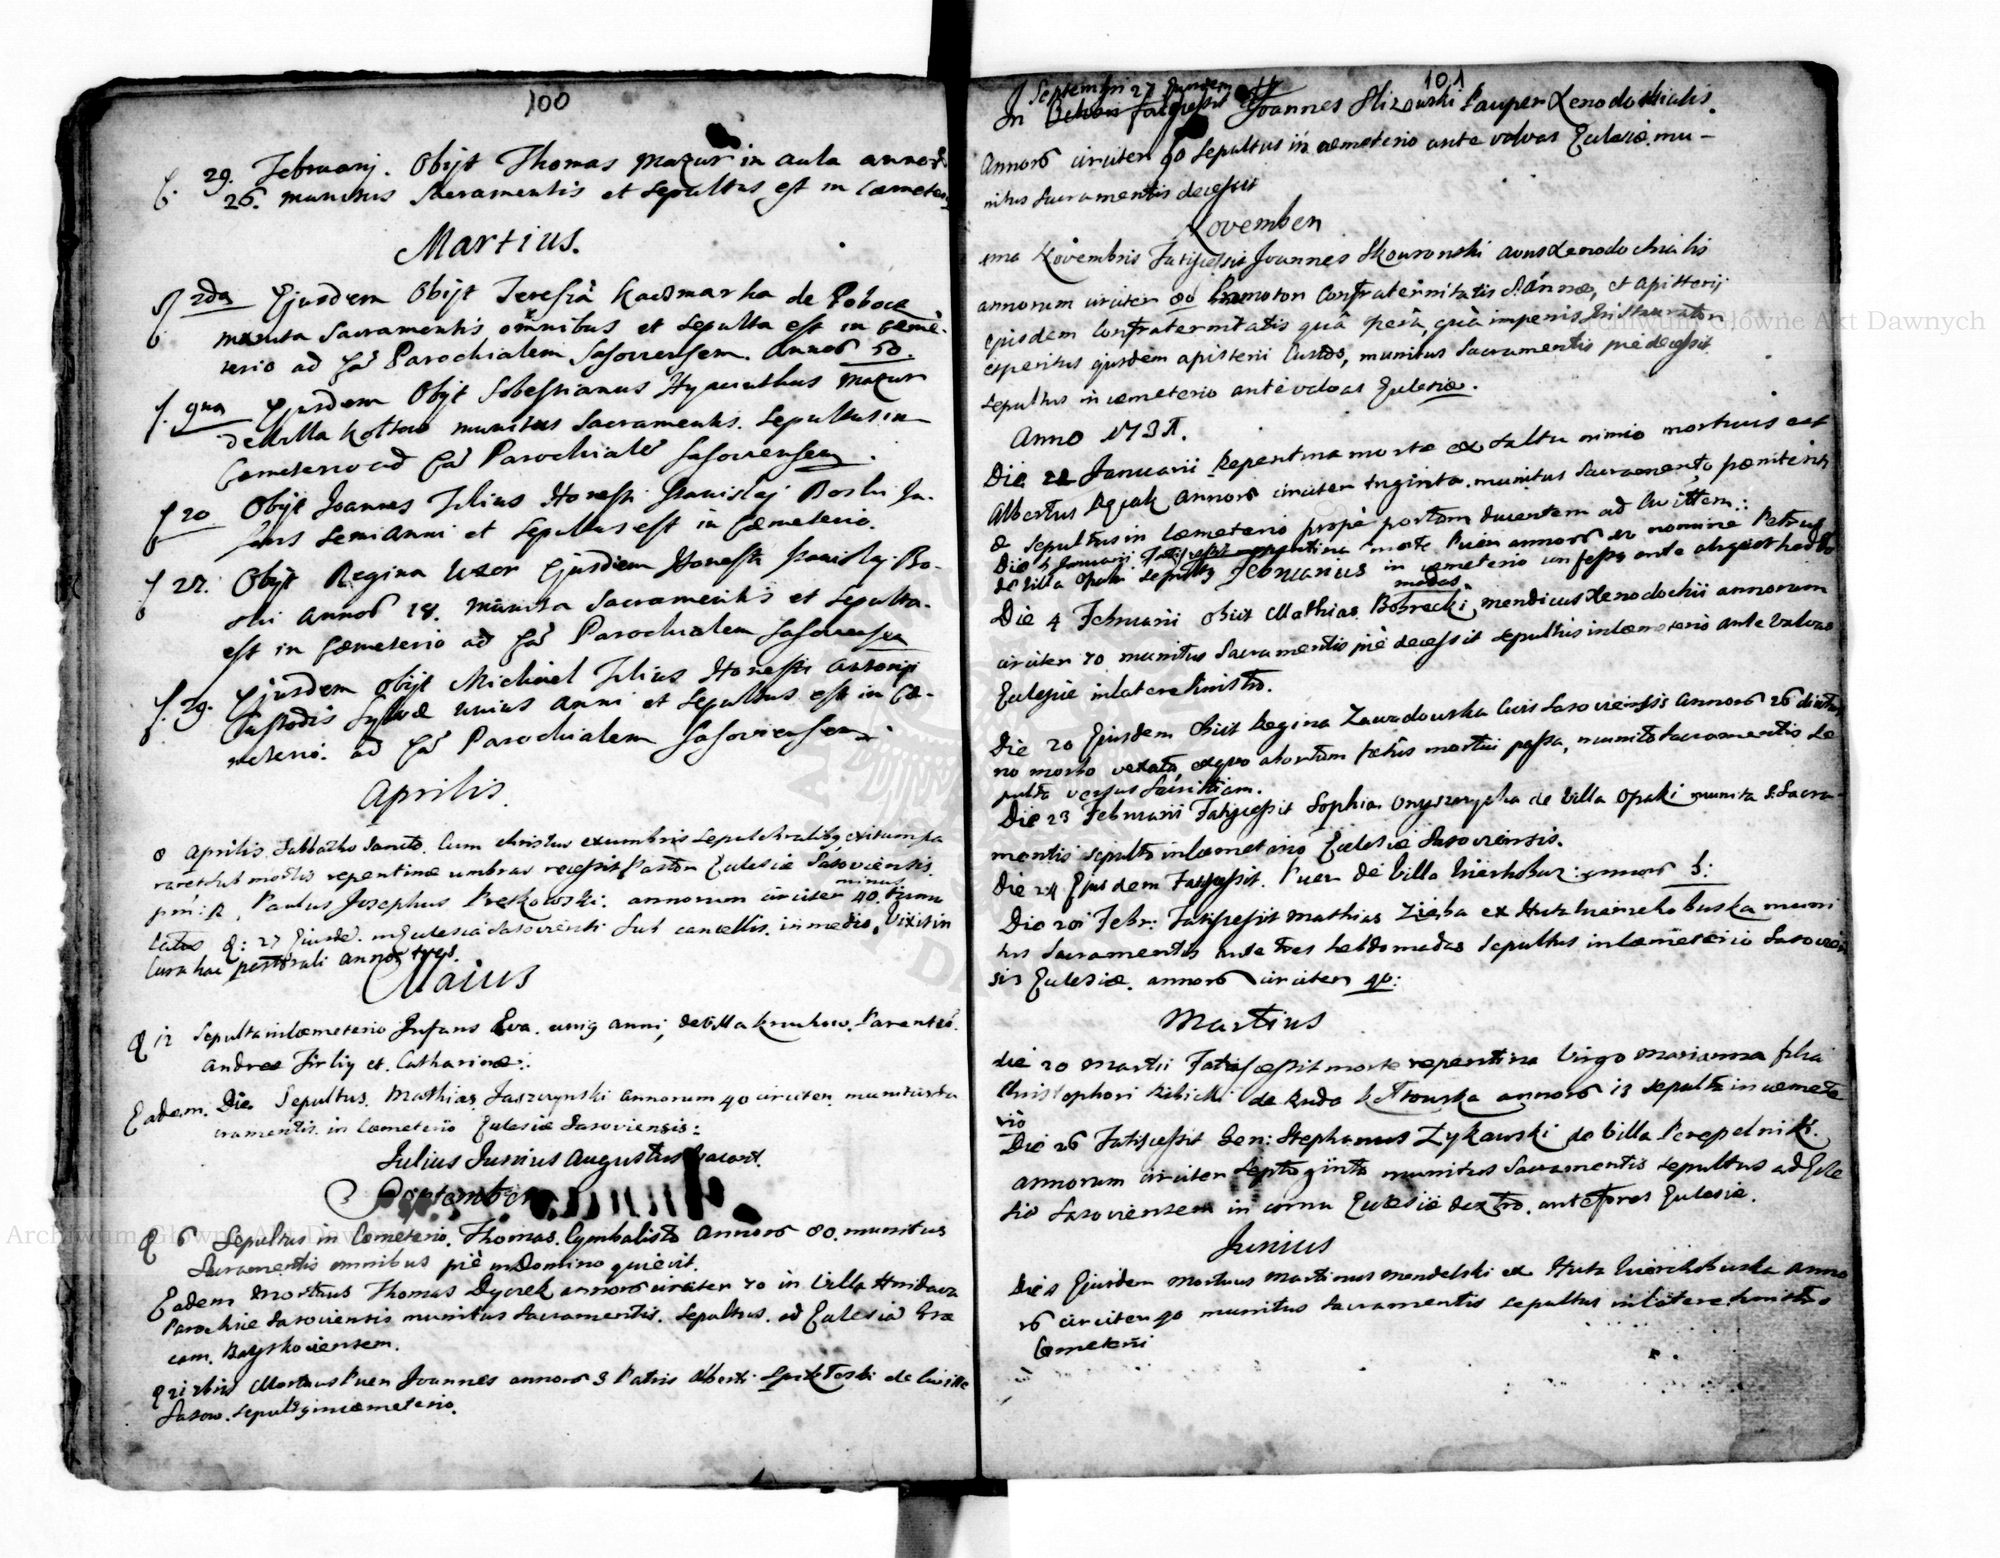 100
f. 29. Februarij. Obijt Thomas Mazur in aula annorũ
26. munitus Sacramentis et sepultus est in Cæmeterio
Martius.
2da Ejusdem Obijt Teresia Kaczmarka de
munita Sacramentis omnibus et sepulta est in Cemê-
terio ad Parochialem Sasoviensem. annoꝝ 50.
f. 9na Ejusdem Obijt Sebestianus Hyacinthus Mazur
de Villa Koltow munitus Sacramentis. Sepultus in
Cemeterio ad Parochialẽ Sasoviensem.
f 20 Obijt Joannes Filius Honesti Stanislaj Boski In-
fans semi Anni et sepultus est in Cæmeterio.
f 27. Obijt Regina Uxor Ejusdem Honesti Stanislaj Bo-
ski annoꝝ 18. munita Sacramentis et sepulta
est in Cæmeterio ad Parochialem Sasoviensem
f. 29. Ejusdem Obijt Michael Filius Honesti Antonij
Custodis Sylvæ unius Anni et sepultus est in Cæ-
meterio. ad Parochialem Sasoviensem.
Aprilis.
8 Aprilis Sabbatho Sancto. Cum Christus ex umbris sepulchralibꝫ exitum pa
raret sub mortis repentinæ umbras recessit Pastor Ecclesiæ Sasoviensis
minus
Paulus Josephus Pretkowski. annorum circiter 40. tumu
latus 27 Ejusdẽ. in Ecclesia Sasoviensi sub cancellis. in medio. Vixit in
Cura hac pastorali annos tres.
Maius
12 Sepulta in Cæmeterio Infans Eva. unig anni, de Villa Kruhow. Parentes.
Andreæ Firliy et. Catharinæ:.
Eadem. Die Sepultus. Mathias Jaszczynski annorum 40 circiter. munitus sa
cramentis. in Cæmeterio Ecclesiæ Sasoviensis:
Julius Junius Augustus vacant.
September
6 Sepultus in Cæmeterio. Thomas. Cymbalista Annoꝝ 80. munitus
Sacramentis omnibus piè in Domino quievit.
Eadem Mortuus Thomas Dyczek annoꝝ circiter 70 in Villa
Parochiæ Sasoviensis munitus Sacramentis. Sepultus. ad Ecclesiã Græ
cam.
Mortuus Puer Joannes annoꝝ 3 Patris Alberti de
Sasow. sepultꝯ in cæmeterio.
101
Septembri 27 Ejusdem
In Fatiscessit Joannes Slizowski Pauper Xenodochialis.
Annoꝝ circiter 90 sepultus in cæmeterio ante valvas Ecclesiæ. mu-
nitus Sacramentis decessit
November
ima Novembris Fatiscessit Joannes Skowronski avus Xenodochialis
annorum circiter 80 Promotor Confraternitatis S. Annæ, et Apisterij
ejusdem Confraternitatis quâ operâ, quâ impensis Instaurator
expertus ejusdem apisterii Custos, munitus Sacramentis piè decessit
sepultus in cæmeterio ante valvas Ecclesiæ.
Anno 1731.
Die 22 Januarii Repentina morte ex saltu nimio mortuus est
Albertus annoꝝ circiter triginta. munitus Sacramento pænitenti
æ sepultus in Cæmeterio propè portam ducentem ad
Die Januarii Fatiscessit repentina morte Puer annoꝝ nomine Petrus
de Villa Opaki sepultꝯ in cæmeterio confessꝯ ante
madas
Die 4 Februarii obiit Mathias Bobrecki, mendicus Xenodochii annorum
circiter 70 munitus Sacramentis piè decessit sepultus in Cæmeterio ante valvas
Ecclesiæ in latere Sinistro.
Die 20 Ejusdem Obiit Regina Zawadowska Civis Sasoviensis Annoꝝ 26 diutur
no morbo vexata exquo abortum fætûs mortui passa, munita Sacramentis se
pulta versus
Die 23 Februarii Fatiscessit Sophia Onyszczycha de Villa Opaki munita S. Sacra-
mentis sepulta in Cæmeterio Ecclesiæ Sasoviensis.
Die 24 Ejusdem Fatiscessit. Puer De Villa annoꝝ 5:
Die 28 Febr: Fatiscessit Mathias Zięba ex Huta muni
tus Sacramentis ante tres hebdomadas sepultus in Cæmeterio Sasovien
sis Ecclesiæ. annoꝝ circiter 40:
Martius
die 20 Martii Fatiscessit morte repentina Virgo Marianna filia
Christophori Ribicki de Ruda Kołtowska annoꝝ 13 sepulta in cæmete
rio
Die 26 Fatiscessit Gen: Stephanus Zykawski de Villa Perepelniki.
annorum circiter Septoginta munitus Sacramentis sepultus ad Eccle
siã Sasoviensem in cornu Ecclesiæ dextro. ante fores Ecclesiæ.
Junius
Die Ejusdem Mortuus Martinus Mendelski ex Huta anno
ꝝ circiter 90 munitus Sacramentis sepultus in latere sinistro
Cemeterii
Archiwum Główne Akt Dawnych
Archiwum Główne Akt Dawnych